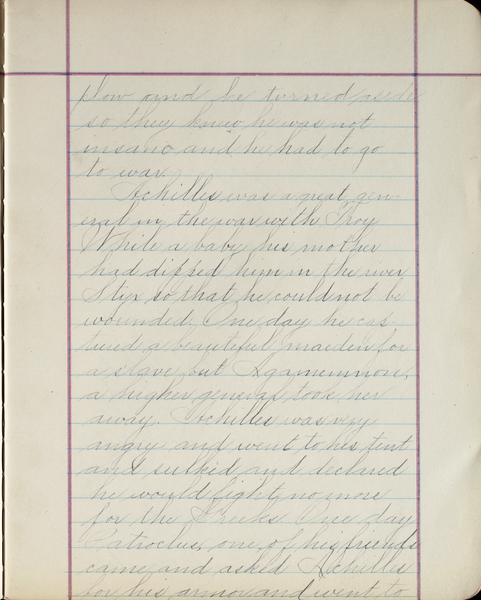 plow and he turned aside
so they knew he was not
insane and he had to go
to war.
Achilles was a great gen-
eral in the war with Troy
While a baby his mother
had dipped him in the river
Stix so that he could not be
wounded. One day he cap-
tured a beautiful maiden for
a slave but Agamemnon,
a higher general took her
away. Achilles was very
angry and went to his tent
and sulked and declared
he would fight no more
for the Greeks. One day
Patroclus, one of his friends
came and asked Achilles
for his armor and went to